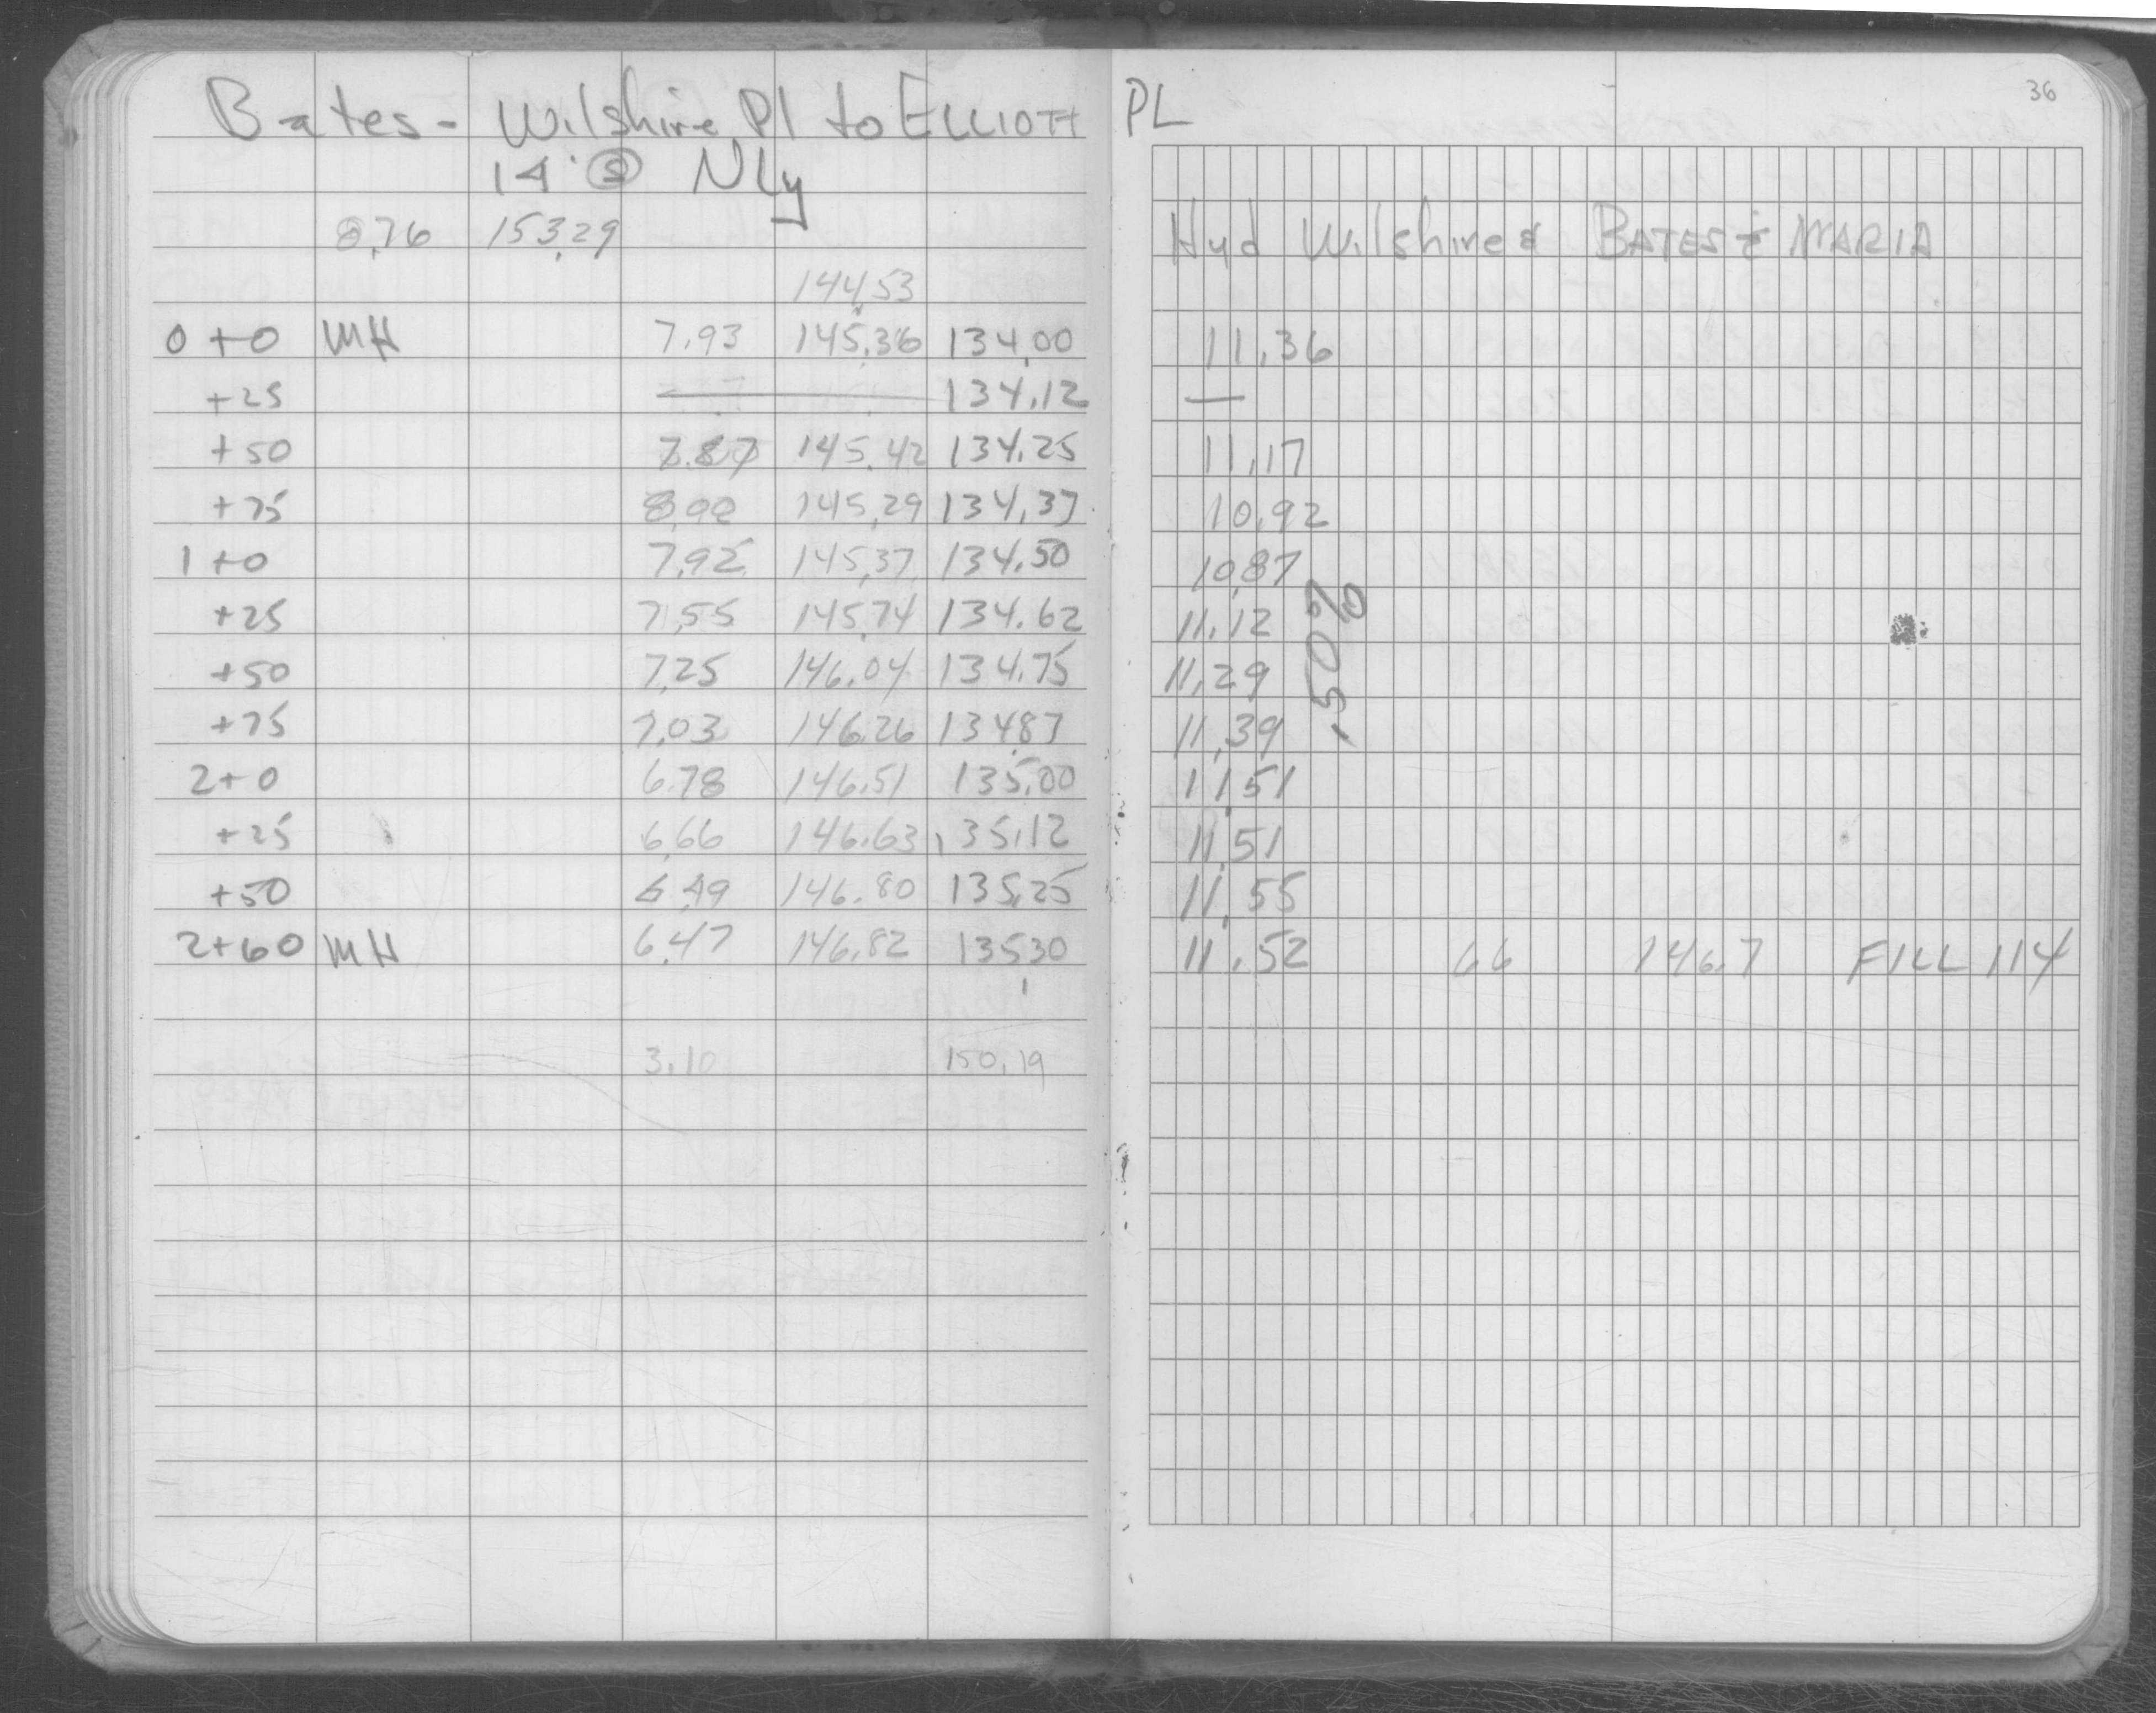 36
Bates - Wilshire Pl to ELLIOTT PL
14' Ⓢ Nly
8.76 153.29 Hyd Wilshire & BATES & MARIA
144.53
0+0 MH 7.93 145.36 134.00 11.36
+25 — 134.12 —
+50 7.87 145.42 134.25 11.17
+75 145.29 134.37 10.92
1+0 7.92 145.37 134.50 10.87
+25 7.55 145.74 134.62 11.12
+50 7.25 146.04 134.75 11.29
+75 7.03 146.26 134.87 11.39
.50%
2+0 6.78 146.51 135.00 11.51
+25 6.66 146.63 135.12 11.51
+50 6.49 146.80 135.25 11.55
2+60 MH 6.47 146.82 135.30 11.52 66 146.7 FILL 114
3.10 150.19